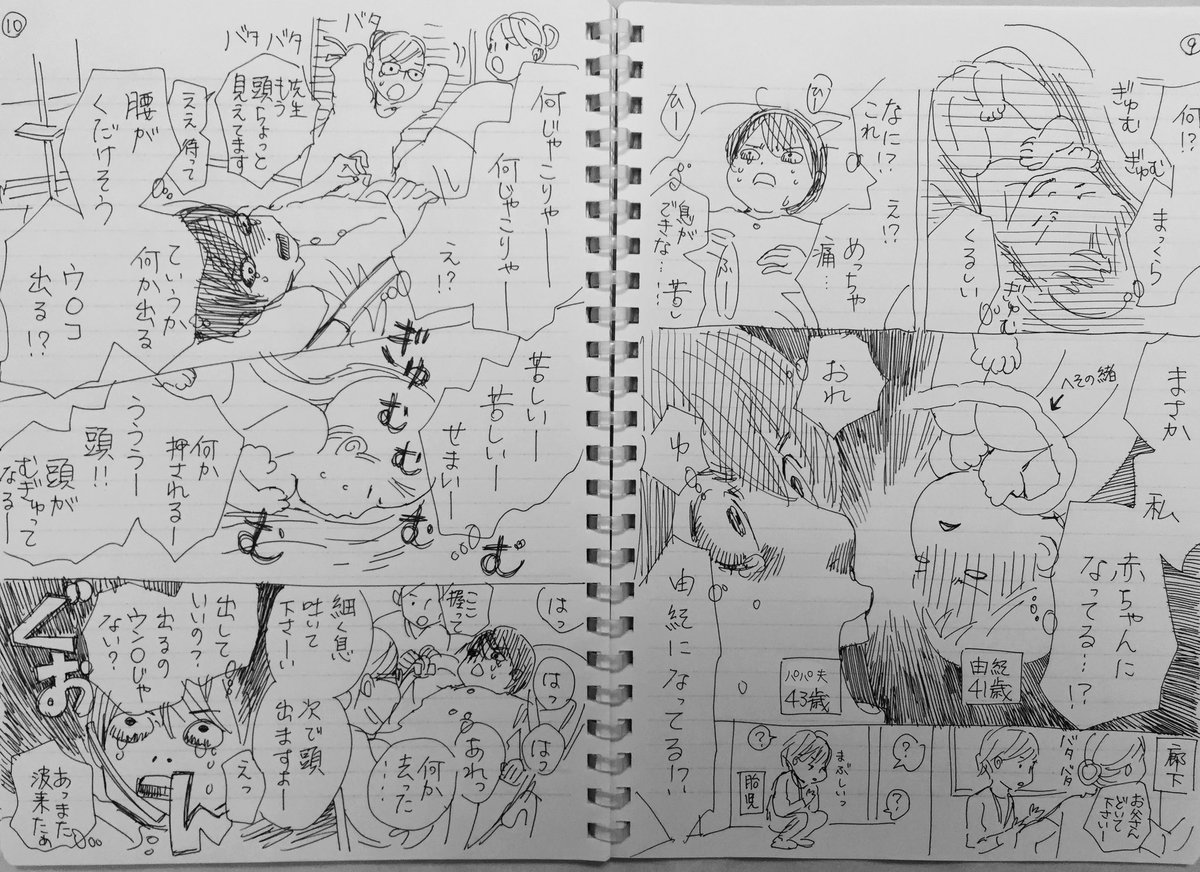 9
何!?
まっくら
ぎゅむ
ぎゅむ
くるしい
ぎゅむ
なに!?
これ
え!?
めっちゃ
痛…
ひー
ひー
ふー
息が
できな…!
苦し
まさか
私
赤ちゃんに
なってる…!?
へその緒
由紀
41歳
おれ
ゆ
由紀になってる!?
パパ夫
43歳
廊下
お父さん
どいて
下さいー
バタバタ
?
?
まぶしいっ
胎児
?
10
何じゃこりゃー
何じゃこりゃー
え!?
バタ
バタ
バタ
先生
もう
頭ちょっと
見えてます
ええ待って
腰が
くだけそう
ていうか
何か出る
ウ○コ
出る!?
苦しいー
苦しいー
せまいー
ぎゅ
む
む
む
む
む
何か
押されるー
うううー
頭!!
頭が
むぎゅって
なるー
はっ
はっ
はっ
ここ
握って
あれっ
何か
去った
……
細く息
吐いて
下さーい
次で頭
出ますよー
えっ
出して
いいの?
出るの
ウン○じゃ
ない?
ぐお
あっまた
波来たぁ